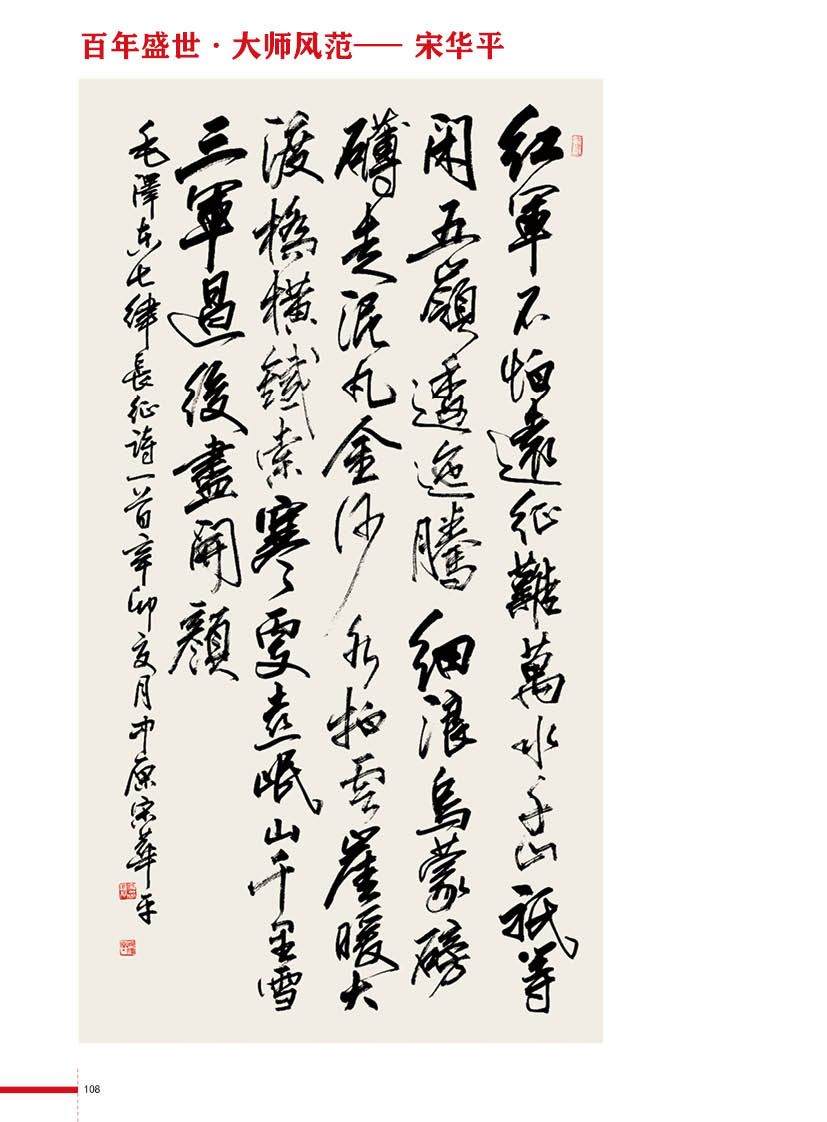 百年盛世·大师风范—— 宋华平
紅軍不怕遠征難萬水千山祇等
閑五嶺逶迤騰細浪烏蒙磅
礴走泥丸金沙水拍雲崖暖大
渡橋橫鐵索寒更喜岷山千里雪
三軍過後盡開顏
毛澤東七律長征詩一首辛卯亥月中原宋華平
108